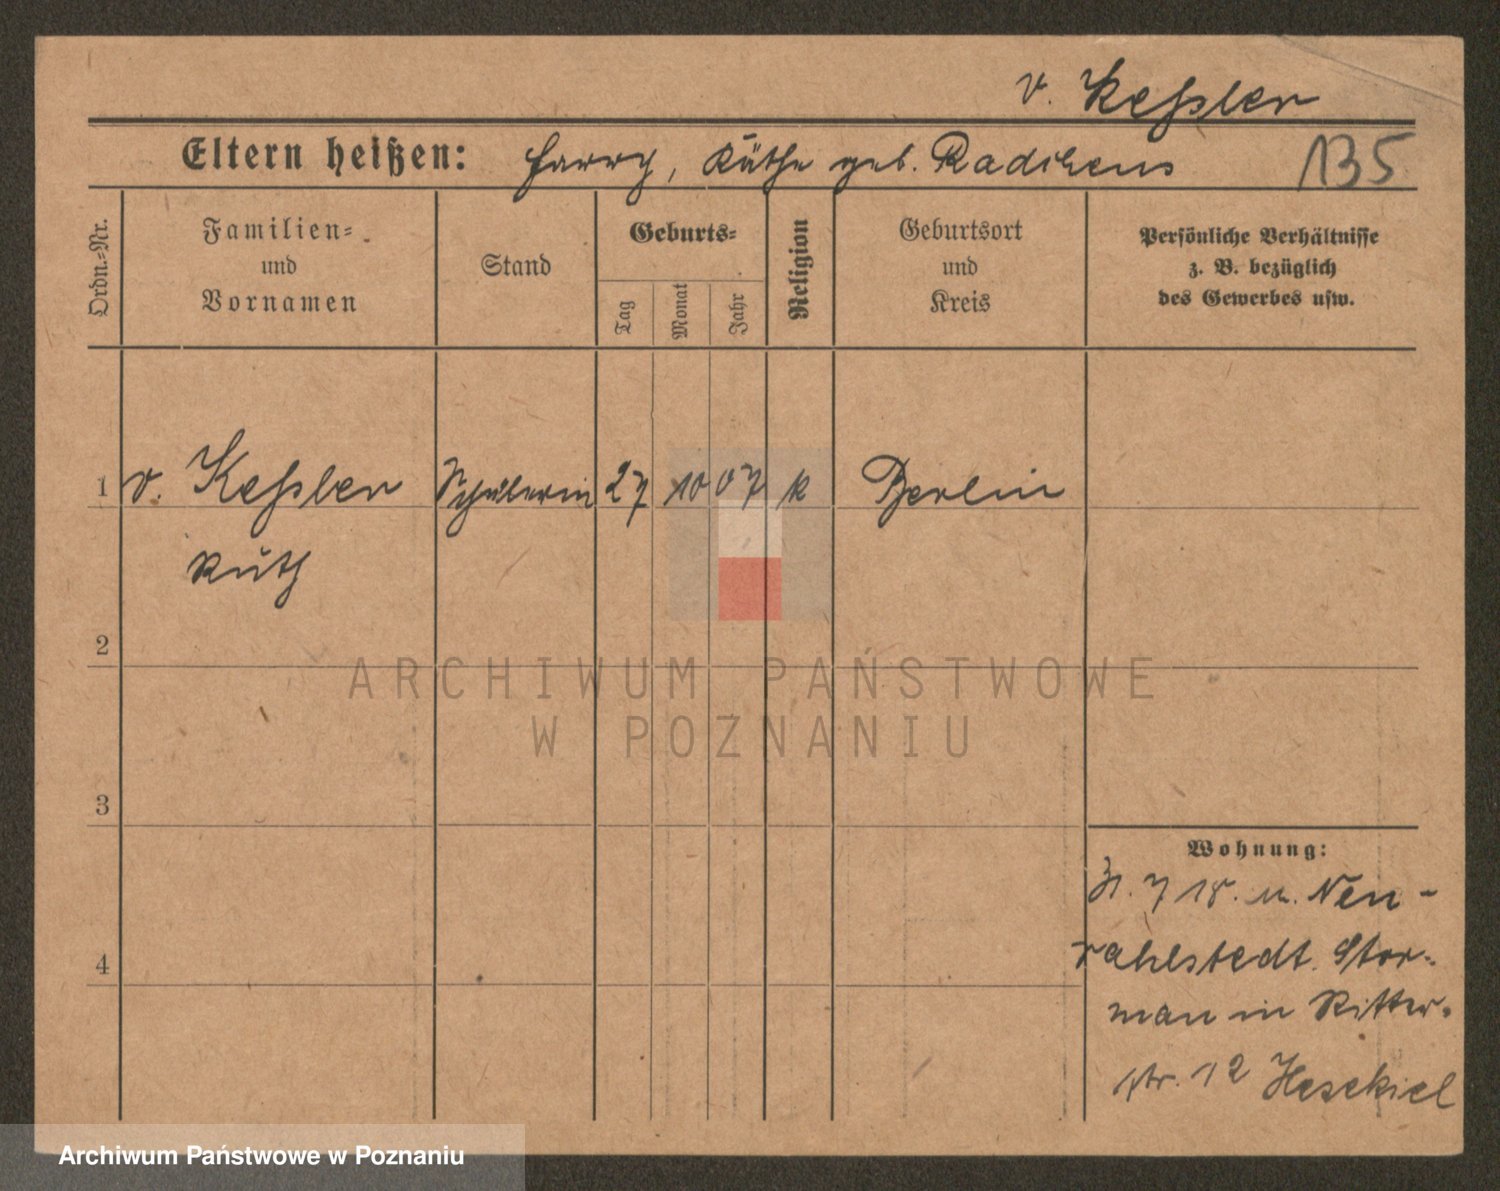 v. Keßler
Eltern heißen: Harry, Käthe geb. Radikens
135
Ordn.-Nr.
Familien-
und
Vornamen
Stand
Geburts-
Tag
Monat
Jahr
Religion
Geburtsort
und
Kreis
Persönliche Verhältnisse
z. B. bezüglich
des Gewerbes usw.
1 v. Keßler Schülerin 27 10 07 k Berlin
Ruth
2
3
4
Wohnung:
7 18. n. Neu-
rahlstedt. Stor-
man in Ritter-
str. 12 Hesekiel
ARCHIWUM PAŃSTWOWE
W POZNANIU
Archiwum Państwowe w Poznaniu